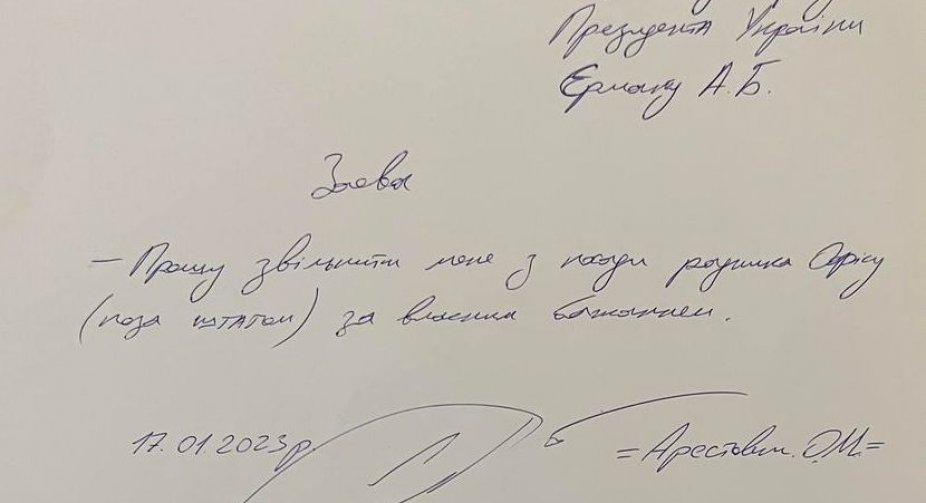 Президента України
Єрмаку А.Б.
Заява
– Прошу звільнити мене з посади радника Офісу
(поза штатом) за власним бажанням.
17.01.2023р
=Арестович. О.М.=